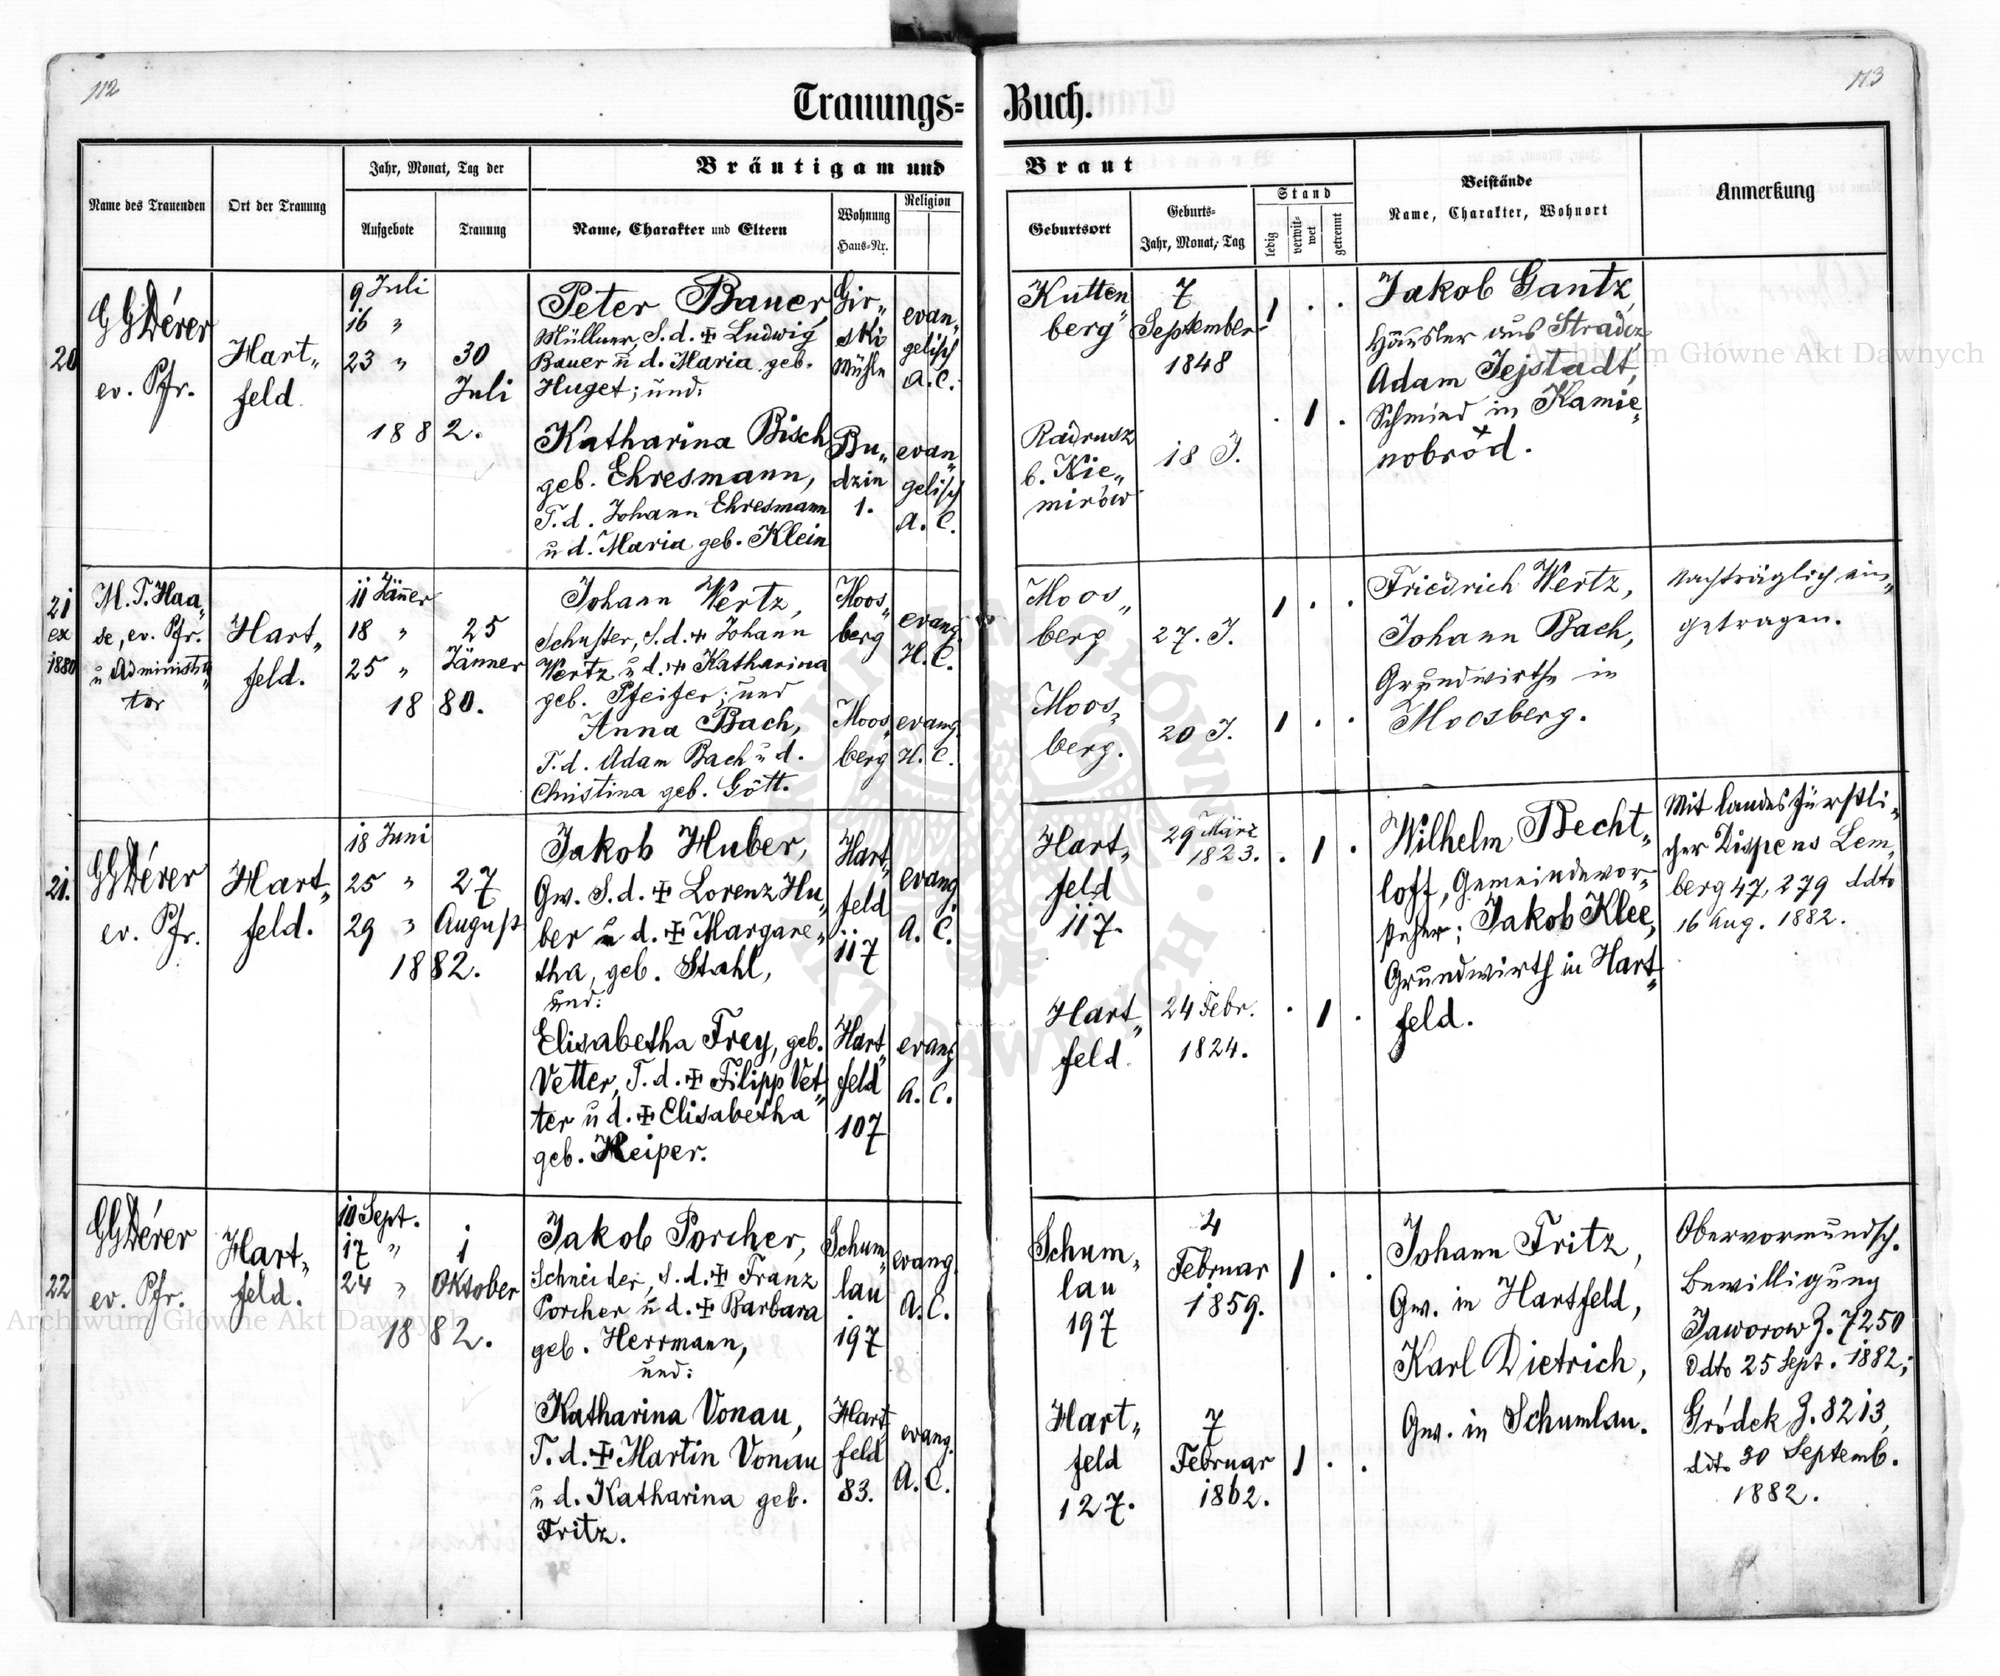 112
113
Trauungs=
Buch.
Name des Trauenden
Ort der Trauung
Jahr, Monat, Tag der
Aufgebote
Trauung
Bräutigam und
Name, Charakter und Eltern
Wohnung
Haus-Nr.
Religion
Braut
Geburtsort
Geburts-
Jahr, Monat, Tag
Stand
ledig
verwit-
wet
getrennt
Beistände
Name, Charakter, Wohnort
Anmerkung
20
GGDérer
ev. Pfr.
Hart„
feld.
9. Juli
16 „
23 „
30
Juli
1882.
Peter Bauer,
Müllner, S. d. ✠ Ludwig
Bauer u d. Maria geb.
Huget; und:
Katharina Bisch
geb. Ehresmann,
T. d. Johann Ehresmann
u d. Maria geb. Klein
Gir„
ski
Mühle
Bu„
dzin
1.
evan„
gelisch
A. C.
evan„
gelisch
A. C.
Kutten„
berg
7
September
1848
1 . .
Radrusz
b. Nie„
mirów
18 J.
. 1 .
Jakob Gantz,
Häusler aus Stradcz
Adam Jejstadt,
Schmied in Kamie„
nobród.
21
ex
1880
M. T. Haa„
se, ev. Pfr.
u Administra„
tor
Hart„
feld.
11 Jänner
18 „
25 „
25
Jänner
1880.
Johann Wertz,
Schuster, S. d. ✠ Johann
Wertz u d. ✠ Katharina
geb. Pfeifer; und
Anna Bach,
T. d. Adam Bach u d.
Christina geb. Gött.
Moos„
berg
Moos„
berg
evang.
H. C.
evang.
H. C.
Moos„
berg
27. J.
1 . .
Moos„
berg.
20 J.
1 . .
Friedrich Wertz,
Johann Bach,
Grundwirthe in
Moosberg.
Nachträglich ein„
getragen.
21.
GGDérer
ev. Pfr.
Hart„
feld.
18 Juni
25 „
29 „
27
August
1882.
Jakob Huber,
Gw. S. d. ✠ Lorenz Hu„
ber u d. ✠ Margare„
tha, geb. Stahl,
und:
Elisabetha Frey, geb.
Vetter, T. d. ✠ Filipp Vet„
ter u d. ✠ Elisabetha
geb. Keiper.
Hart„
feld
117
Hart„
feld
107
evang.
A. C.
evang.
A. C.
Hart„
feld
117.
29 März
1823.
. 1 .
Hart„
feld.
24 Febr.
1824.
. 1 .
Wilhelm Becht„
loff, Gemeindevor„
steher; Jakob Klee,
Grundwirth in Hart„
feld.
Mit landesfürstli„
cher Dispens Lem„
berg 47,279 ddto
16 Aug. 1882.
22
GGDérer
ev. Pfr.
Hart„
feld.
10 Sept.
17 „
24 „
1
Oktober
1882.
Jakob Porcher,
Schneider, S. d. ✠ Franz
Porcher u d. ✠ Barbara
geb. Herrmann,
und:
Katharina Vonau,
T. d. ✠ Martin Vonau
u d. Katharina geb.
Fritz.
Schum„
lau
197
Hart„
feld
83.
evang.
A. C.
evang.
A. C.
Schum„
lau
197
4
Februar
1859.
1 . .
Hart„
feld
127.
7
Februar
1862.
1 . .
Johann Fritz,
Gw. in Hartfeld,
Karl Dietrich,
Gw. in Schumlau.
Obervormundsch.
Bewilligung
Jaworow Z. 7250
ddto 25 Sept. 1882;
Gródek Z. 8213,
ddto 30 Septemb.
1882.
Archiwum Główne Akt Dawnych
Archiwum Główne Akt Dawnych
ARCHIWUM GŁÓWNE AKT DAWNYCH